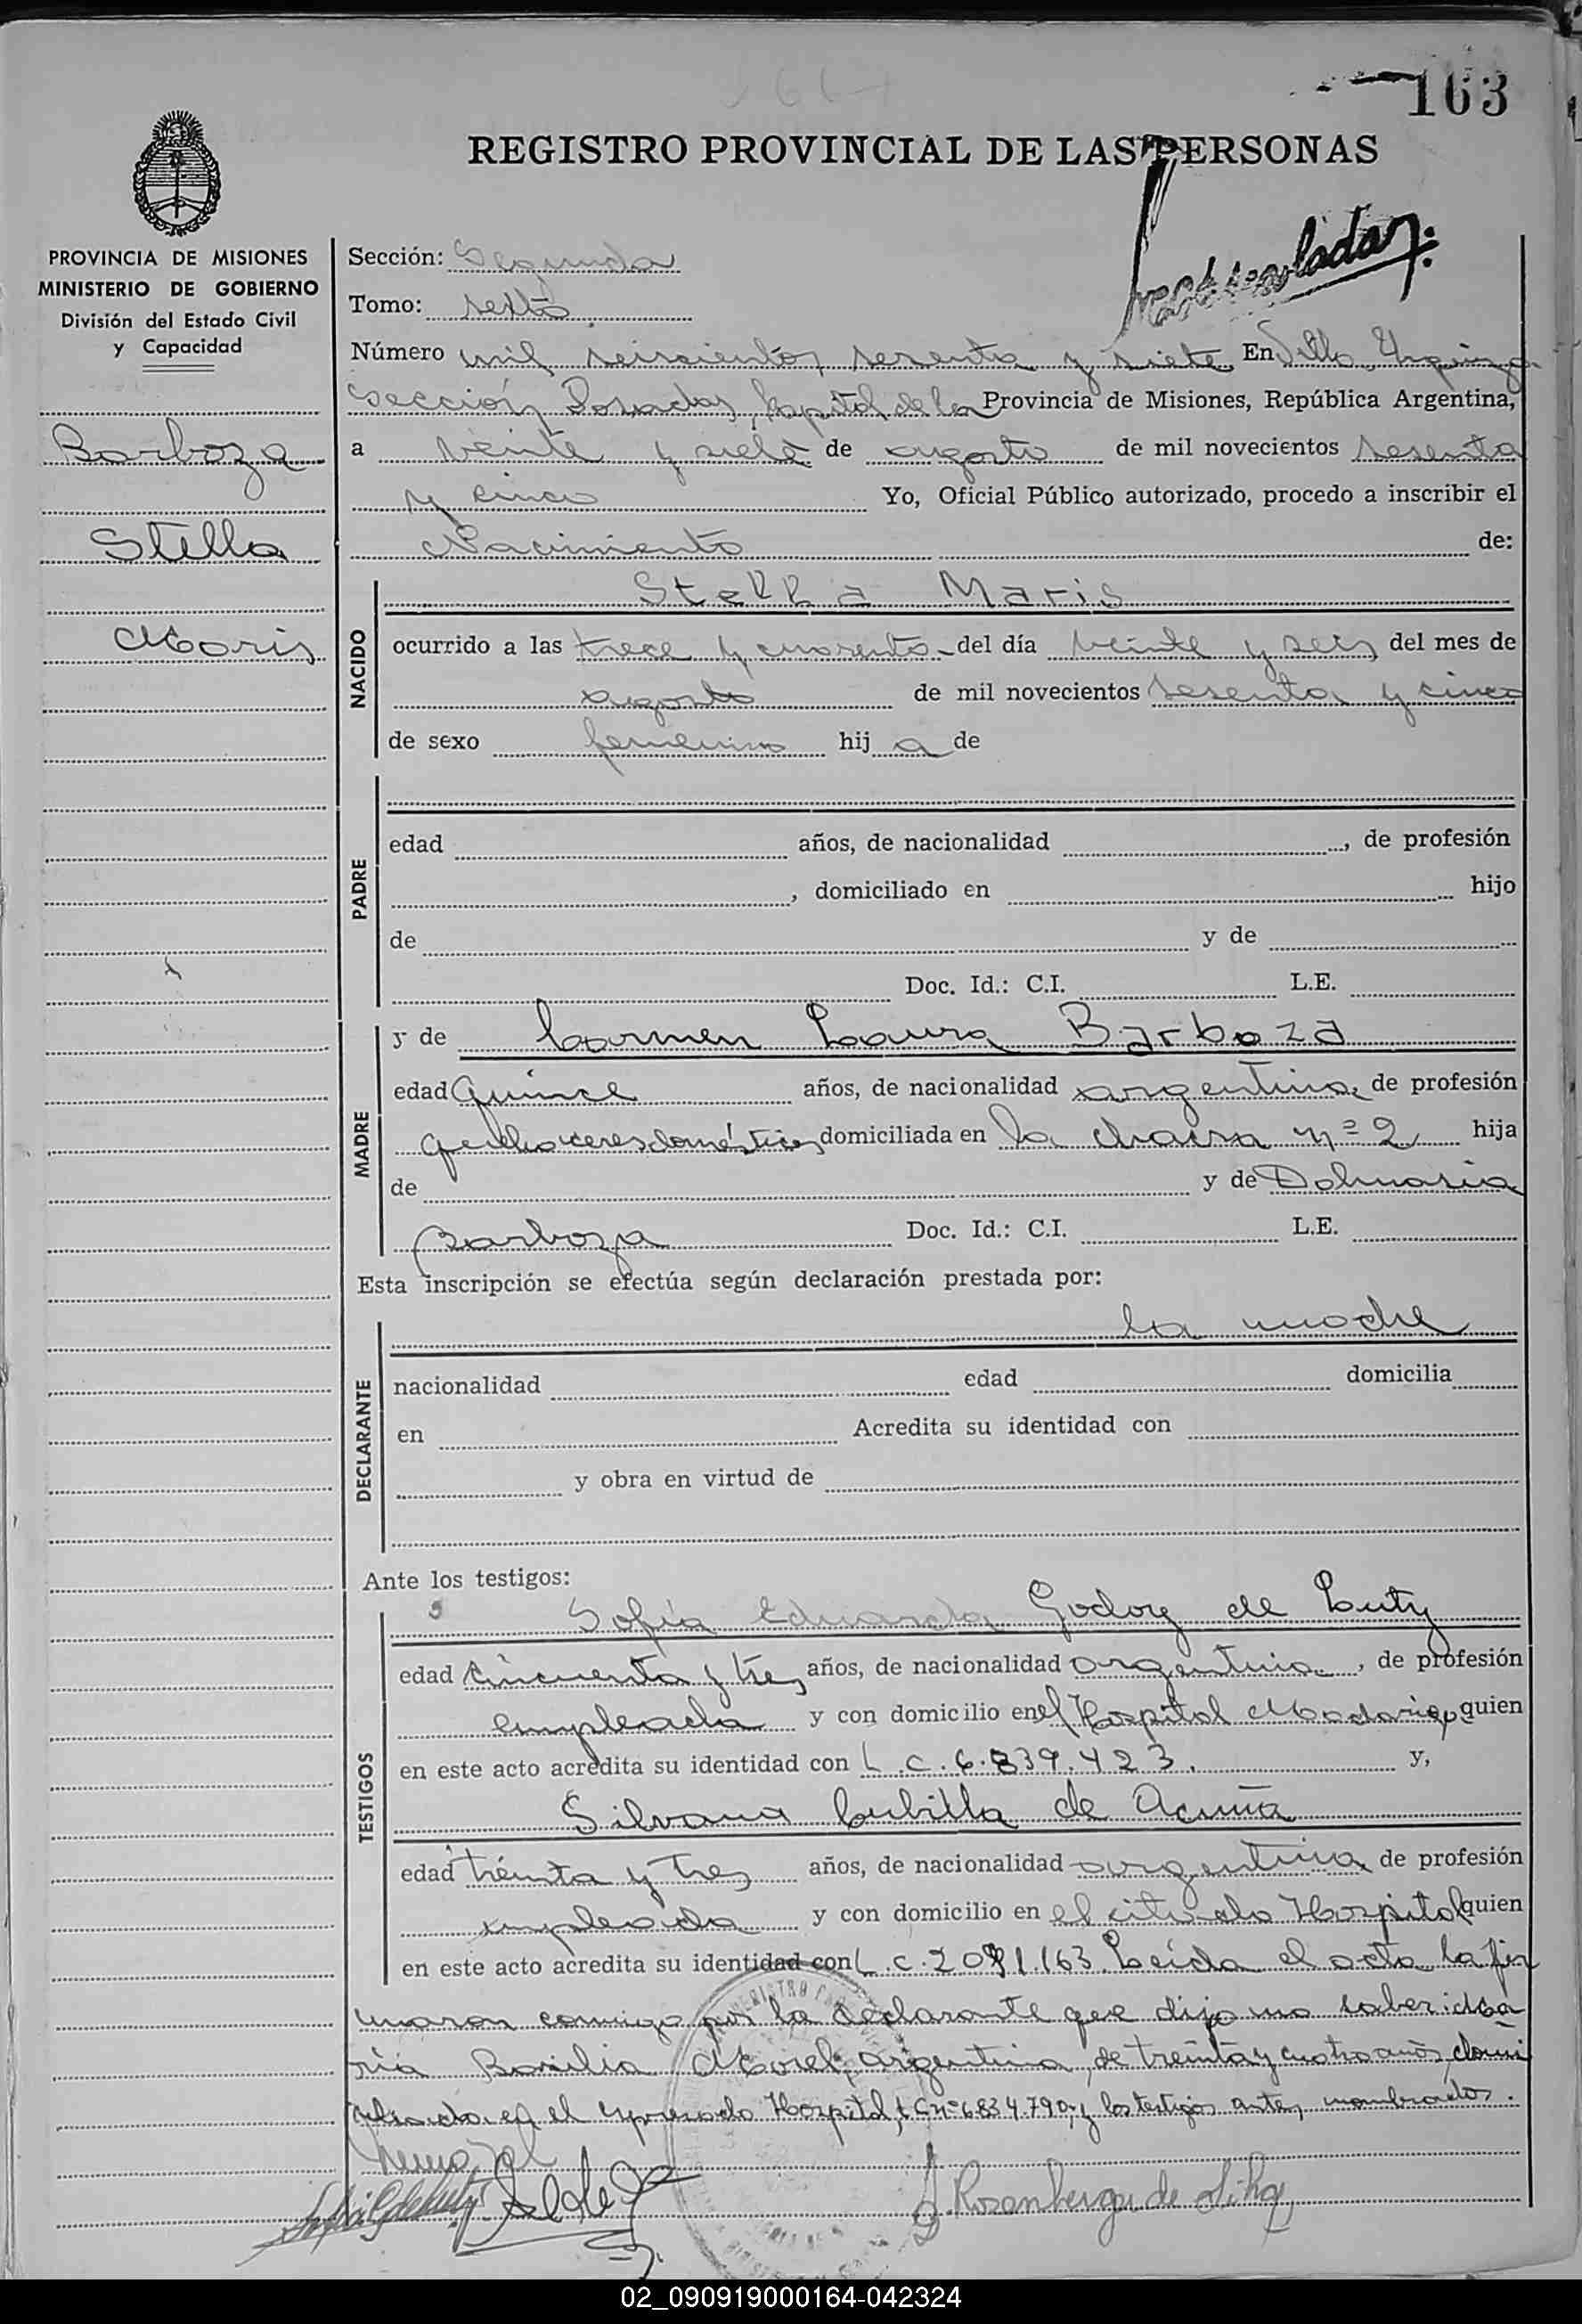 163
REGISTRO PROVINCIAL DE LAS PERSONAS
PROVINCIA DE MISIONES
MINISTERIO DE GOBIERNO
División del Estado Civil
y Capacidad
Barboza
Stella
Maris
Sección: Segunda
Tomo: sexto
Número mil seiscientos sesenta y siete En Villa Urquiza
Sección Posadas, Capital de la Provincia de Misiones, República Argentina,
a veinte y siete de agosto de mil novecientos sesenta
y cinco Yo, Oficial Público autorizado, procedo a inscribir el
Nacimiento de:
NACIDO
Stella Maris
ocurrido a las trece y cuarenta del día veinte y seis del mes de
agosto de mil novecientos sesenta y cinco
de sexo femenino hij a de
PADRE
edad años, de nacionalidad , de profesión
, domiciliado en hijo
de y de
Doc. Id.: C.I. L.E.
MADRE
y de Carmen Laura Barboza
edad Quince años, de nacionalidad argentina, de profesión
quehaceres domésticos domiciliada en la chacra nº 2 hija
de y de Dolmasia
Barboza Doc. Id.: C.I. L.E.
Esta inscripción se efectúa según declaración prestada por:
DECLARANTE
la madre
nacionalidad edad domicilia
en Acredita su identidad con
y obra en virtud de
Ante los testigos:
TESTIGOS
Sofía Eduarda Godoy de Luty
edad cincuenta y tres años, de nacionalidad argentina, de profesión
empleada y con domicilio en el Hospital Madariaga quien
en este acto acredita su identidad con L.C. 6.839.423. y,
Silvana Cubilla de Acuña
edad treinta y tres años, de nacionalidad argentina de profesión
empleada y con domicilio en el citado Hospital quien
en este acto acredita su identidad con L.C. 2091.163. Leída el acta la fir
maron conmigo por la declarante que dijo no saber: Ma
ría Basilia Morel, argentina, de treinta y cuatro años, domi
ciliada en el expresado Hospital, L C nº 6834.790 y los testigos antes nombrados.
02_090919000164-042324